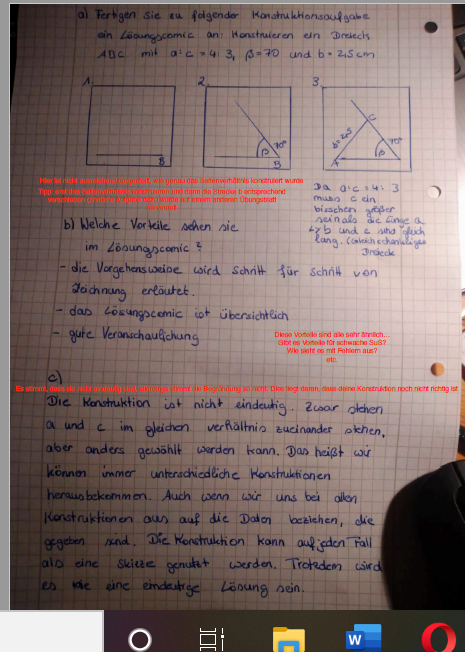 a) Fertigen Sie zu folgender Konstruktionsaufgabe
ein Lösungscomic an: Konstruieren ein Dreiecks
ABC mit a:c = 4:3, β=70 und b = 2,5cm
1. 2. 3.
B
β 70°
B
b=2,5
C
A
β 70°
Hier ist nicht ausreichend
wie genau das Seitenverhältnis konstruiert wurde
Tipp: erst das Seitenverhältnis konstruieren und dann die Strecke b entsprechend
verschieben
Da a:c = 4:3
muss c ein
bisschen größer
sein als die Länge a
↳ b und c sind gleich
lang. (Gleichschenkliges
Dreieck
b) Welche Vorteile sehen sie
im Lösungscomic?
- die Vorgehensweise wird Schritt für Schritt von
Zeichnung erläutet.
- das Lösungscomic ist übersichtlich
- gute Veranschaulichung
Diese Vorteile sind alle sehr ähnlich...
Gibt es Vorteile für schwache SuS?
Wie sieht es mit Fehlern aus?
etc.
c)
Es stimmt, dass sie nicht eindeutig sind, allerdings stimmt die Begründung so nicht. Dies liegt daran, dass deine Konstruktion noch nicht richtig ist
Die Konstruktion ist nicht eindeutig. Zwar stehen
a und c im gleichen verhältnis zueinander stehen,
aber anders gewählt werden kann. Das heißt wir
können immer unterschiedliche Konstruktionen
herausbekommen. Auch wenn wir uns bei allen
Konstruktionen aus auf die Daten beziehen, die
gegeben sind. Die Konstruktion kann auf jeden Fall
als eine Skizze genutzt werden. Trotzdem wird
es nie eine eindeutige Lösung sein.
W